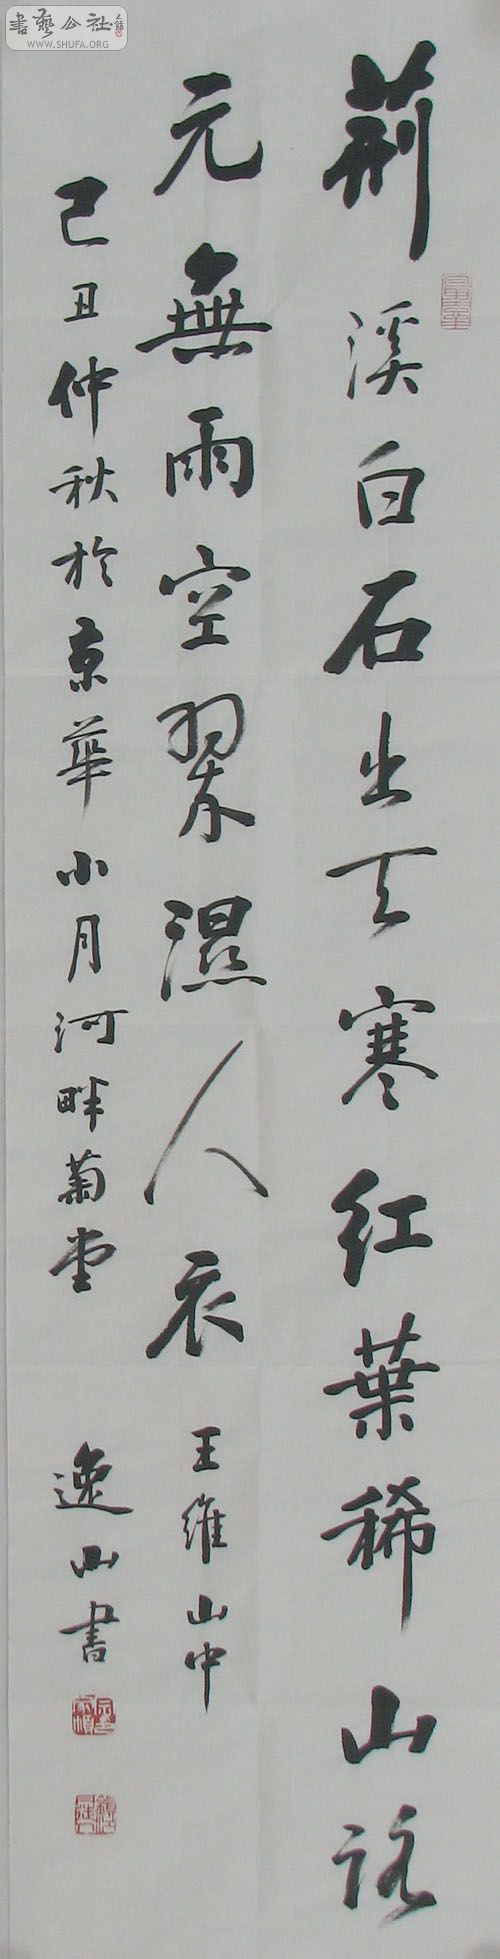 書藝公社
WWW.SHUFA.ORG
荊溪白石出天寒红葉稀山路
元無雨空翠濕人衣 王維山中
己丑仲秋於京華小月河畔菊堂 逸山書